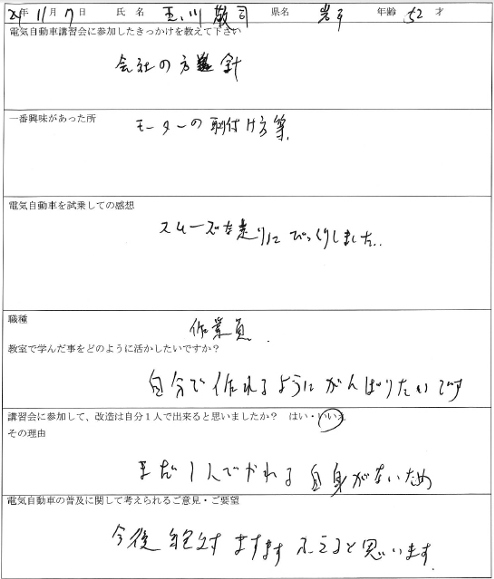 21年 11月 7日 氏 名 玉川 敬司 県名 岩手 年齢 52 才
電気自動車講習会に参加したきっかけを教えて下さい
会社の方針
一番興味があった所
モーターの取付け方等
電気自動車を試乗しての感想
スムーズな走りにびっくりしました。
職種
作業員
教室で学んだ事をどのように活かしたいですか？
自分で作れるようにがんばりたいです
講習会に参加して、改造は自分1人で出来ると思いましたか？ はい・いいえ
その理由
まだ1人でやれる自身がないため
電気自動車の普及に関して考えられるご意見・ご要望
今後 ますます ふえると思います